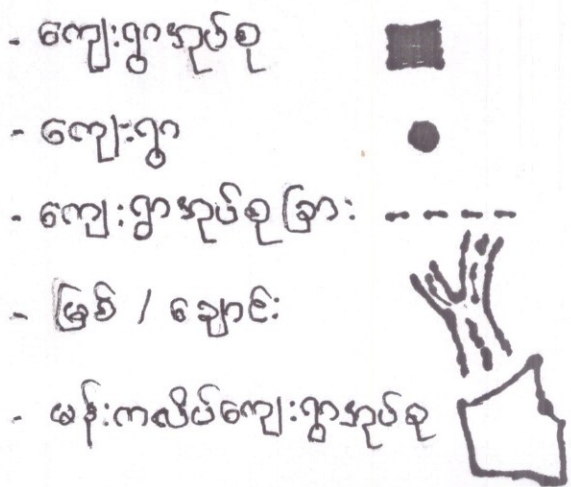 - ကျေးရွာအုပ်စု
- ကျေးရွာ
- ကျေးရွာအုပ်စု ခြား
- မြစ် / ချောင်း
- မန်းကလိပ်ကျေးရွာအုပ်စု